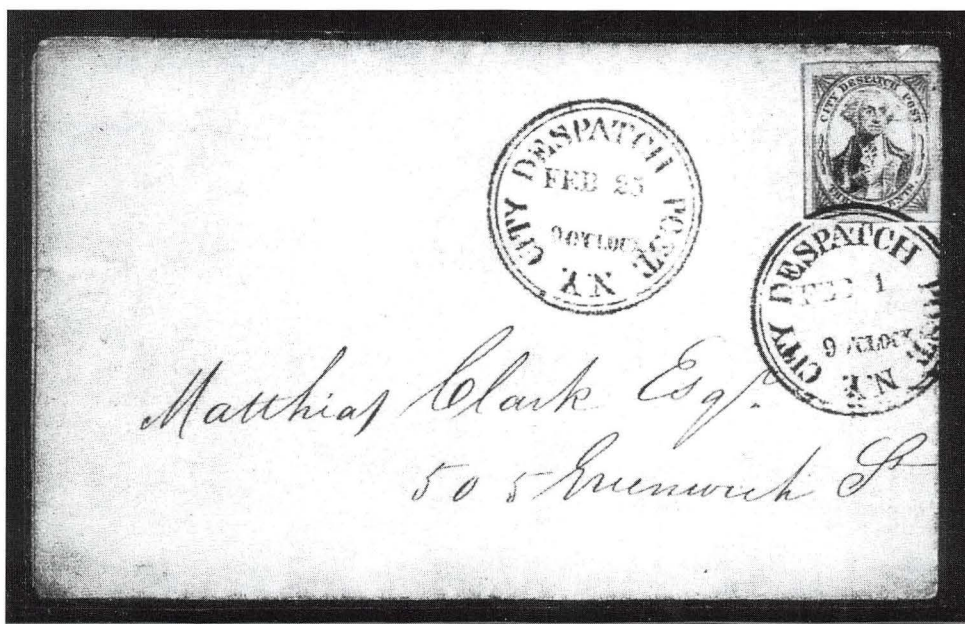 CITY DESPATCH POST
CITY DESPATCH POST. N.Y.
FEB 25
9 O'CLOCK
CITY DESPATCH POST. N.Y.
FEB 1
9 O'CLOCK
Matthias Clark Esqr.
505 Greenwich St